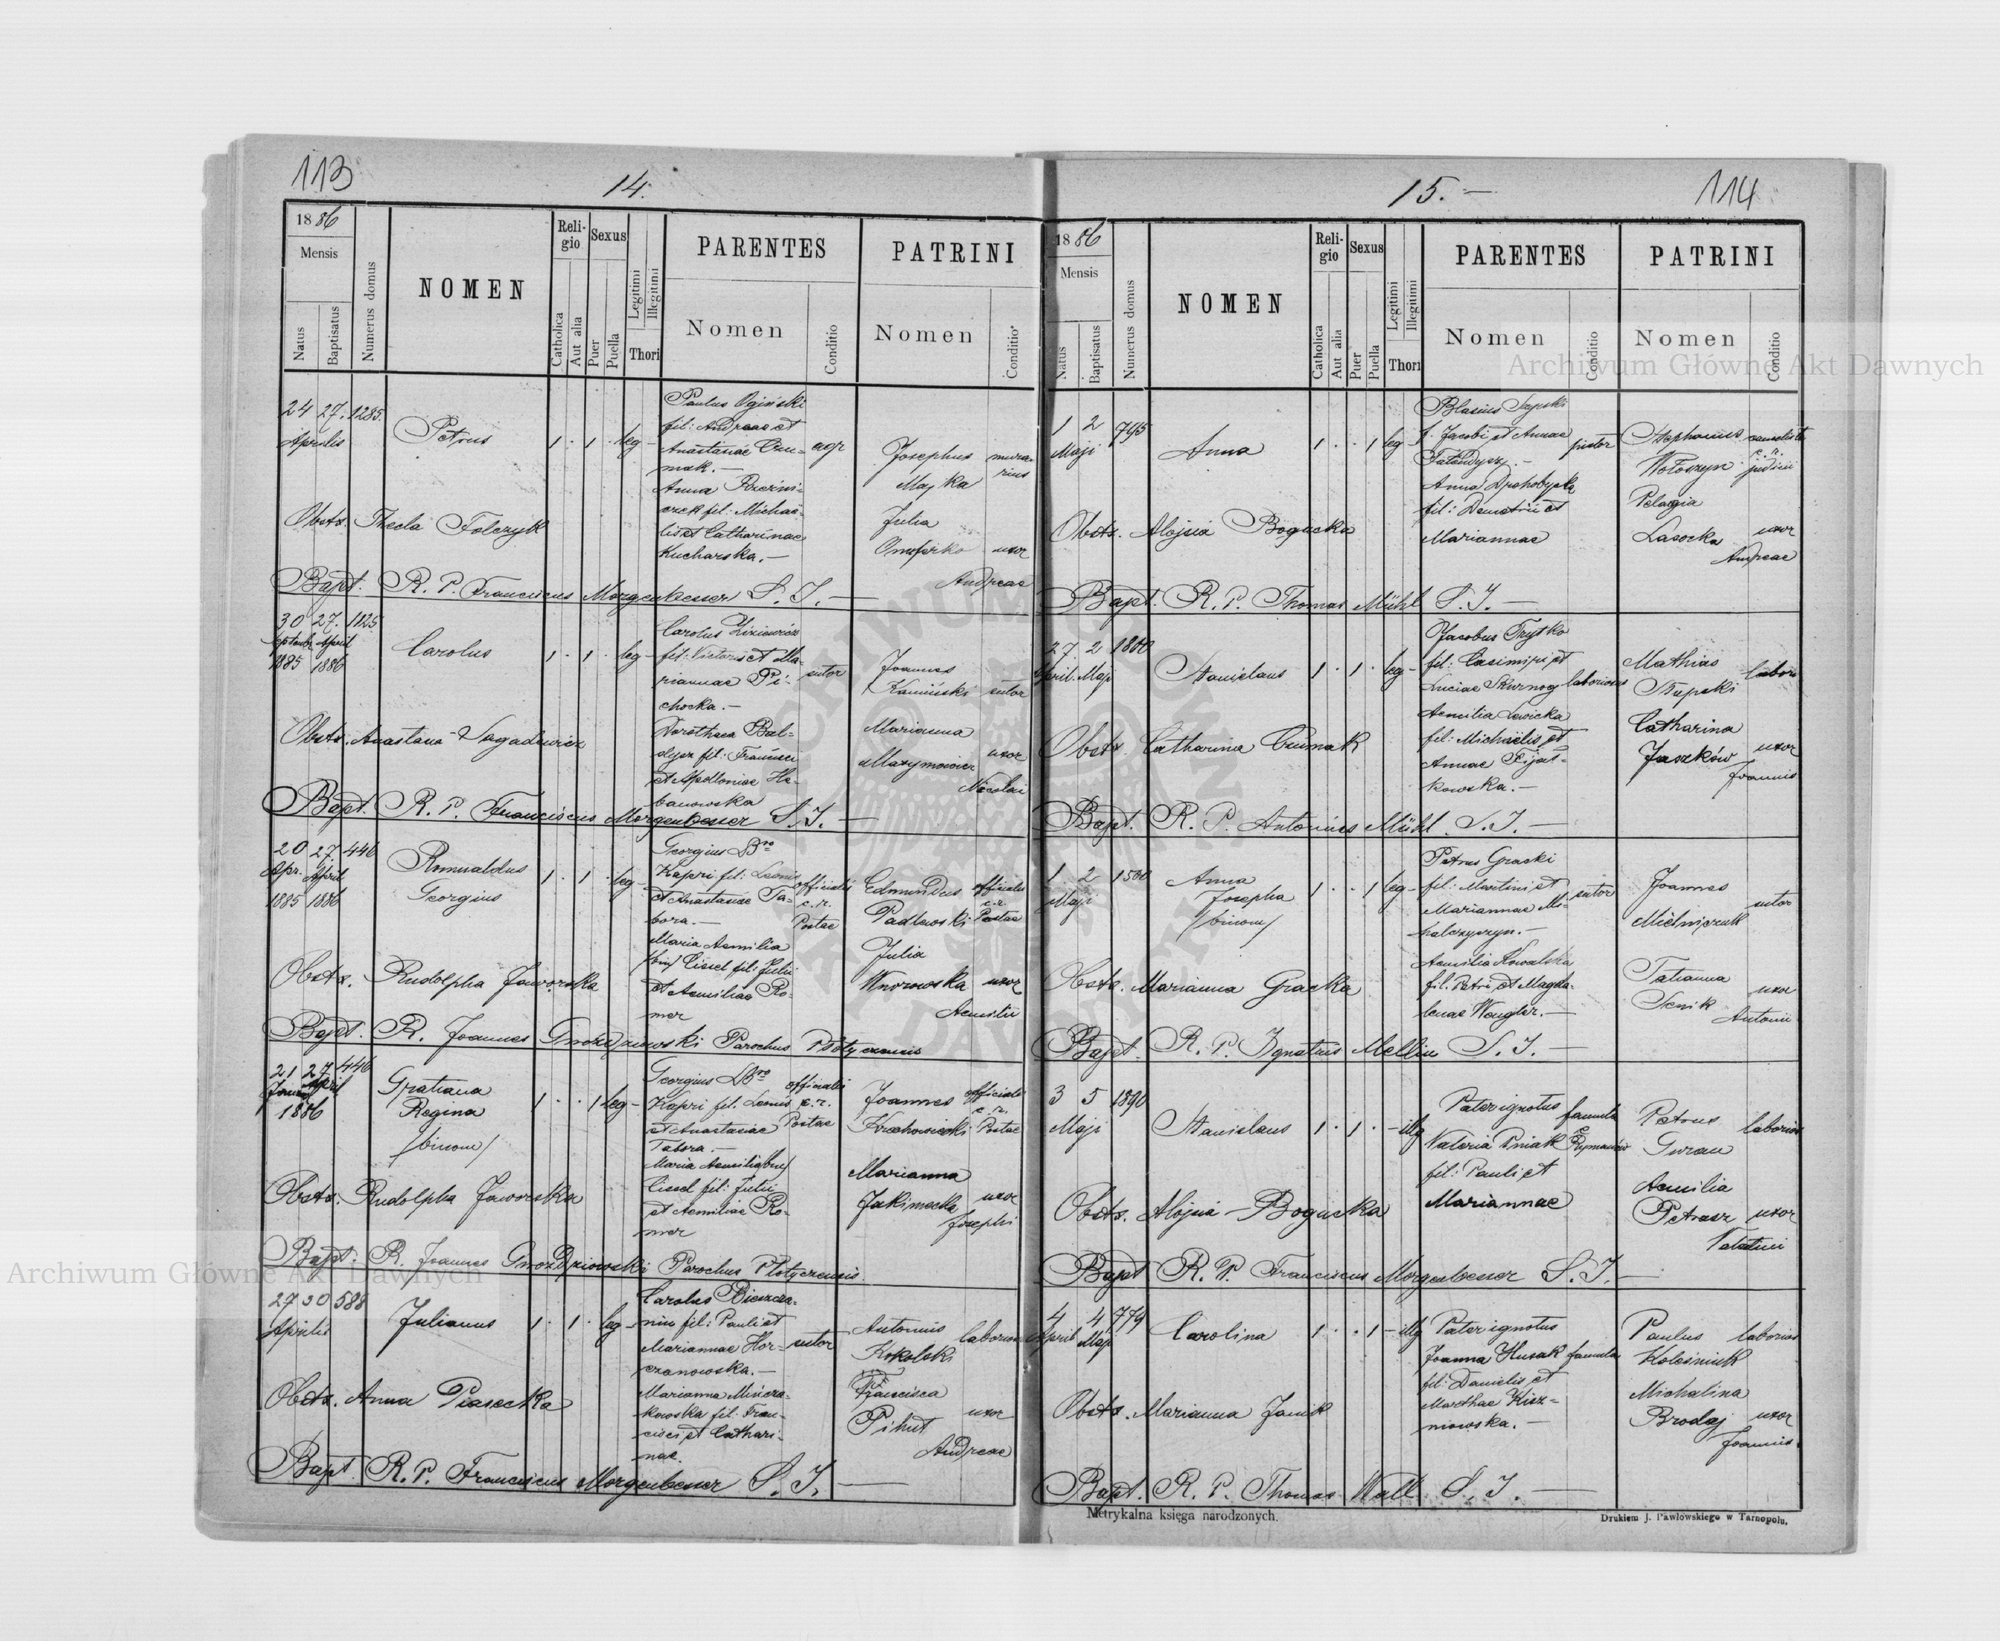 113
14.
1886
Mensis
Natus
Baptisatus
Numerus domus
NOMEN
Religio
Catholica
Aut alia
Sexus
Puer
Puella
Legitimi
Illegitimi
Thori
PARENTES
Nomen
Conditio
PATRINI
Nomen
Conditio
24 27. 1285.
Aprilis
Petrus
1 . 1 . leg –
Paulus Ogiński
fil: Andreae et
Anastasiae Czu-
mak. –
agr
Anna
fil: Michaë-
lis et Catharinae
Kucharska. –
Josephus
Majka
murarius
Julia
Onufrko uxor
Andreae
Obstx. Thecla Folczyk
Bapt. R. P. Franciscus Morgenbesser S. J. –
30 27. 1125
April
1885 1886
Carolus
1 . 1 . leg –
Carolus
fil: Victoris et Ma-
riannae Pi-
chocka. –
sutor
Dorothaea Bal-
fil: Francisci
et Apolloniae Ha-
banowska
Joannes
Kamiński sutor
Marianna
uxor
Nicolai
Obstx. Anastasia
Bapt. R. P. Franciscus Morgenbesser S. J. –
20 27 446
Apr. April
1885 1886
Romualdus
Georgius
1 . 1 . leg –
Georgius Bro
Kapri fil: Leonis
et Anastasiae Ta-
bora. –
officialis
c. r.
Postae
Maria Aemilia
/bin/ Cissel fil: Julii
et Aemiliae Ro-
mer
Edmundus
Padlewski
officialis
c. r.
Postae
Julia
Wnorowska uxor
Aemilii
Obstx. Rudolpha Jaworska
Bapt. R. Joannes Gnozdziowski Parochus Płotycensis
21 27 446
April
1886
Gratiana
Regina
/binom/
1 . . 1 leg –
Georgius Bro
Kapri fil. Leonis
et Anastasiae
Tabora. –
officialis
c. r.
Postae
Maria Aemilia /bin/
Cissel fil: Julii
et Aemiliae Ro-
mer
Joannes
Krechowiecki
officialis
c. r.
Postae
Marianna
Jakimecka uxor
Josephi
Obstx. Rudolpha Jaworska
Bapt. R. Joannes Gnozdziowski Parochus Płotycensis
27 30 588
Aprilis
Julianus
1 . 1 . leg –
Carolus
fil: Pauli et
Mariannae Hor-
czanowska. –
sutor
Marianna Mińcza-
kowska fil: Fran-
cisci et Cathari-
nae.
Antonius
Kokolski
Francisca
Pihut
uxor
Andreae
Obstx. Anna Piasecka
Bapt. R. P. Franciscus Morgenbesser S. J. –
15. –
114
1886
Mensis
Natus
Baptisatus
Numerus domus
NOMEN
Religio
Catholica
Aut alia
Sexus
Puer
Puella
Legitimi
Illegitimi
Thori
PARENTES
Nomen
Conditio
PATRINI
Nomen
Conditio
1 2 795
Maji
Anna
1 . . 1 leg –
Blasius
f. Jacobi et Annae
pistor
Anna Drohobycka
fil: Demetrii et
Mariannae
Stephanus
Wołoszyn
c. r.
judicii
Pelagia
Lasocka uxor
Andreae
Obstx. Alojsia Bogucka
Bapt. R. P. Thomas Mühl S. J. –
27 2 1860
April. Maji
Stanislaus
1 . 1 . leg –
Jacobus Trytko
fil: Casimiri et
Luciae Skurnog
laboriosus
Aemilia Lewicka
fil: Michaëlis et
Annae Fijał-
kowska. –
Mathias
Słupski
labor
Catharina
Jaszków uxor
Joannis
Obstx. Catharina Czumak
Bapt. R. P. Antonius Mühl. S. J. –
1 2 1500
Maji
Anna
Josepha
/binom/
1 . . 1 leg –
Petrus Gracki
fil: Martini et
Mariannae Mi-
halczyszyn. –
sutor
Aemilia Kowalska
fil. Petri et Magda-
lenae Wengler. –
Joannes
Mielniczuk
sutor
Tatianna
Senik uxor
Antonii
Obstx. Marianna Gracka
Bapt. R. P. Ignatius Mellin S. J. –
3 5 1890
Maji
Stanislaus
1 . 1 . – illg
Pater ignotus
famula
Valeria Pniak
fil: Pauli et
Mariannae
Petrus
Guran
laborios
Aemilia
Petrasz uxor
Valentini
Obstx. Alojsia Bogucka
Bapt R. P. Franciscus Morgenbesser S. J. –
4 4 779
April Maji
Carolina
1 . . 1 – illg
Pater ignotus
Joanna Husak famula
fil: Danielis et
Marthae Kisz-
niowska. –
Paulus
Kolesniuk
laborios
Michalina
Brodaj uxor
Joannis.
Obstx. Marianna Janik
Bapt. R. P. Thomas Wall S. J. –
Metrykalna księga narodzonych.
Drukiem J. Pawłowskiego w Tarnopolu.
Archiwum Główne Akt Dawnych
Archiwum Główne Akt Dawnych